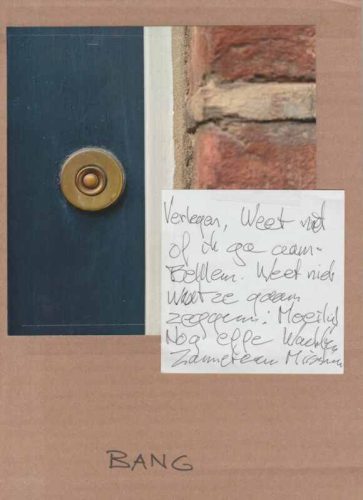 Verlegen, Weet niet
of ik ga aan-
Bellen. Weet niet
Wat ze gaan
zeggen: Moeilijk
Nog effe Wachten
BANG